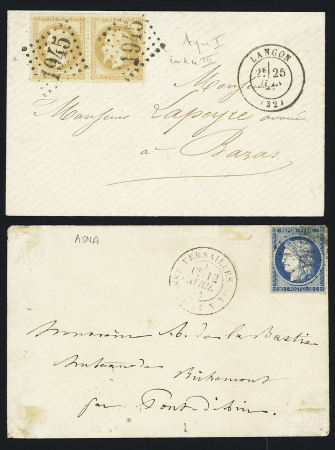 1945
1945
LANGON
25
(32)
Monsieur
Monsieur Lapeyre avoué
à Bazas
ASNA
VERSAILLES
12
REPUB. FRANC.
25 POSTES 25
Monsieur A. de la Bastie
Richemont
par Pont d'Ain